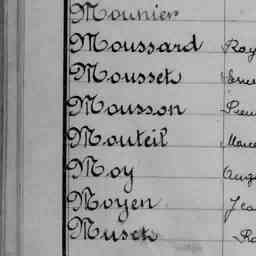 Mounier
Moussard Ray
Mousset
Mousson
Mouteil Marce
Moy
Moyen Jea
Muset Ro